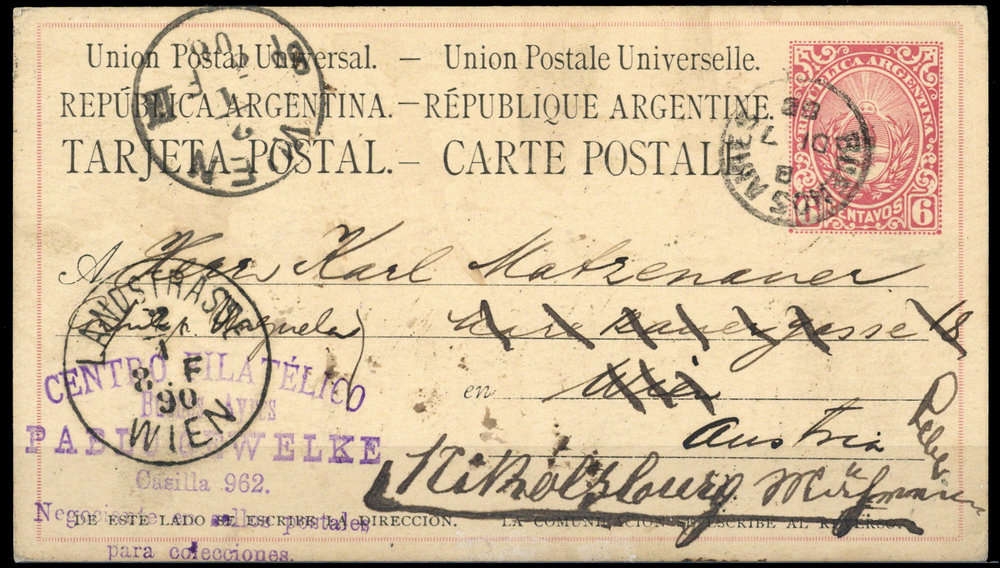 Union Postal Universal. — Union Postale Universelle.
REPÚBLICA ARGENTINA. — RÉPUBLIQUE ARGENTINE.
TARJETA POSTAL. — CARTE POSTAL
REPUBLICA ARGENTINA
6 CENTAVOS 6
BUENOS AIRES
WIEN
90
A Herrn Karl Matzenauer
gasse 18
en Wien
Austria
Nikolsburg Mähren
LANDSTRASSE
2
1
8. F
90
WIEN
CENTRO FILATÉLICO
Buenos Aires
PABLO WELKE
Casilla 962.
Negociante en sellos postales
para colecciones.
DE ESTE LADO SE ESCRIBE LA DIRECCION. LA COMUNICACION SE ESCRIBE AL REVERSO